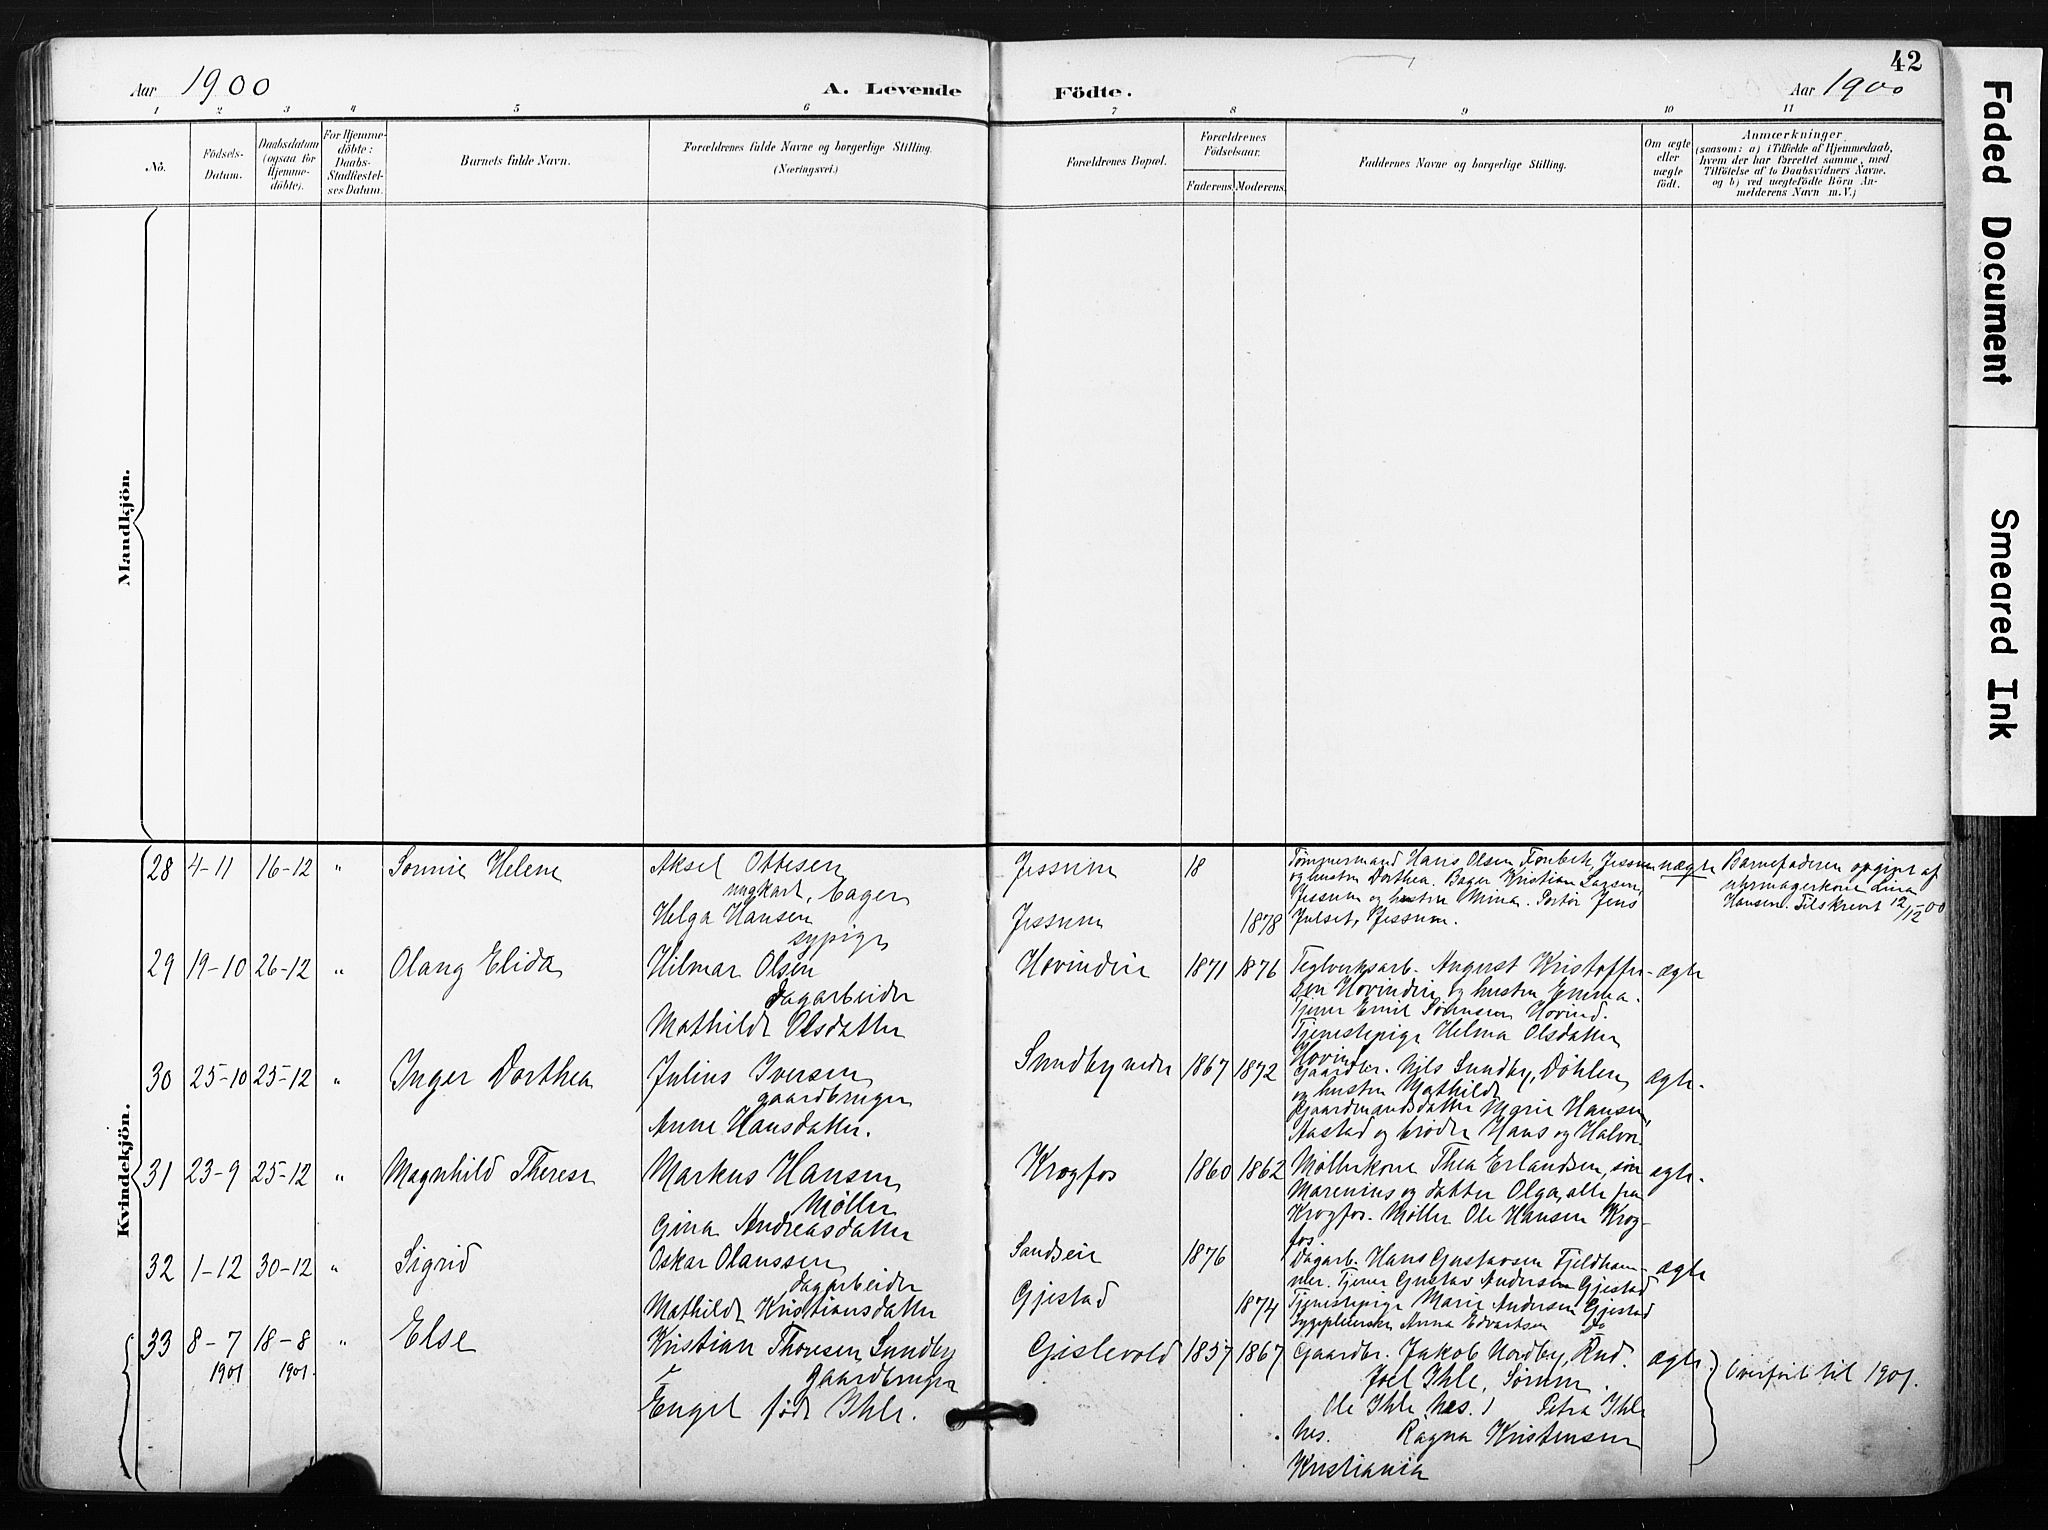 42
Aar 1900
A. Levende Födte.
Aar 1900
1 2 3 4 5 6 7 8 9 10 11
Nò.
Födsels-Datum.
Daabsdatum (ogsaa for Hjemme-döbte).
For Hjemme-döbte: Daabs-Stadfæstel-ses Datum.
Barnets fulde Navn.
Forældrenes fulde Navne og borgerlige Stilling.
(Næringsvei.)
Forældrenes Bopæl.
Forældrenes Födselsaar.
Faderens. Moderens.
Faddernes Navne og borgerlige Stilling.
Om ægte eller uægte födt.
Anmærkninger
(saasom: a) i Tilfælde af Hjemmedaab,
hvem der har forrettet samme, med
Tilföielse af to Daabsvidners Navne.
og b) ved uægtefödte Börn An-
melderens Navn m.V.;
Mandkjön.
Kvindekjön.
28 4-11 16-12 " Sonnie Helene
Aksel Ottesen
ungkarl, bager
Helga Hansen
sypige
Jessum 18
Jessum 1878
Tømmermand Hans Olsen Jessum
og hustru Dorthea. Bager Kristian Larsen,
Jessum og hustru Mina. Portør Jens
Julset, Jessum.
uægte
Barnefaderen opgivet af
uhrmagerkone Lina
Hansen. Tilskrevet 12/12 00
29 19-10 26-12 " Olang Elida
Hilmar Olsen
Dagarbeider
Mathilde Olsdatter
Hovindeie 1871 1876
Teglverksarb. August Kristoffer-
sen Hovindeie og hustru Emma.
Tjener Emil Sørensen Hovind.
Tjenestepige Helma Olsdatter
Hovind
ægte
30 25-10 25-12 " Inger Dorthea
Julius Iversen
gaardbruger
Anne Hansdatter.
Sundby nedre 1867 1872
Gaardbr. Nils Sundby, Døhlen,
og hustru Mathilde
Gaardmandsdatter Marie Hansen,
Aastad og brødre Hans og Halvor
ægte.
31 23-9 25-12 " Magnhild Therese
Markus Hansen
Møller
Gina Andreasdatter
Krogfos 1860 1862
Møllerkone Thea Erlandsen, søn
Marenius og datter Olga, alle fra
Krogfos. Møller Ole Hansen Krog-
fos
ægte.
32 1-12 30-12 " Sigrid
Oskar Olaussen
Dagarbeider
Mathilde Kristiansdatter
Sandseie 1876
Gjestad 1874
Dagarb. Hans Gustavsen Fjeldham-
mer. Tjener Gustav Andersen Gjestad
Tjenestepige Marie Andersen Gjestad
Sygepleierske Anna Edvartsen Do
ægte
33 8-7 1901 18-8 1901. " Else
Kristian Thovsen Sundby
Gaardbruger
Engel født Ihle.
Gislevold 1857 1867
Gaardbr. Jakob Nordby, Rud.
Joel Ihle,
Ole Ihle Nes. Petra Ihle
Nes. Ragna Kristensen
Kristiania
ægte
Overført til 1901.
Faded Document
Smeared Ink